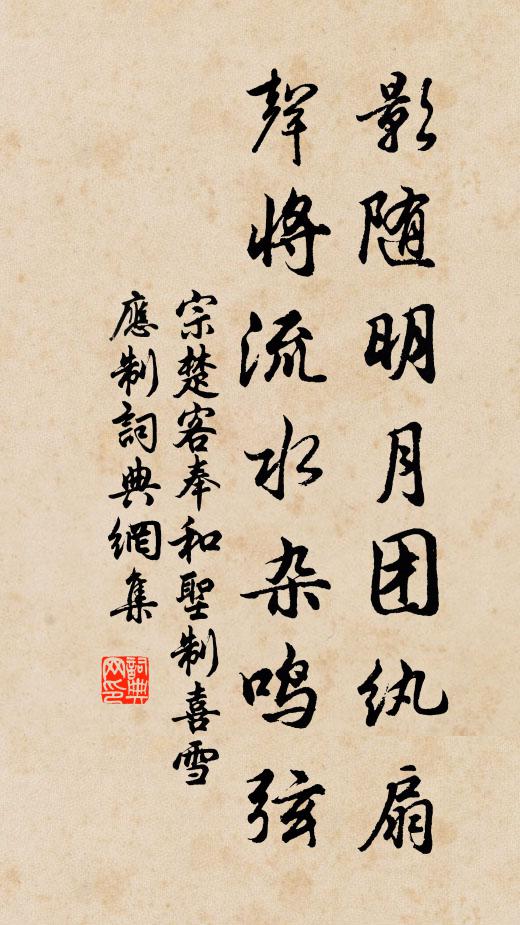 影随明月团纨扇
聲将流水杂鸣弦
宗楚客奉和聖制喜雪
應制詞典網集
詞典网印